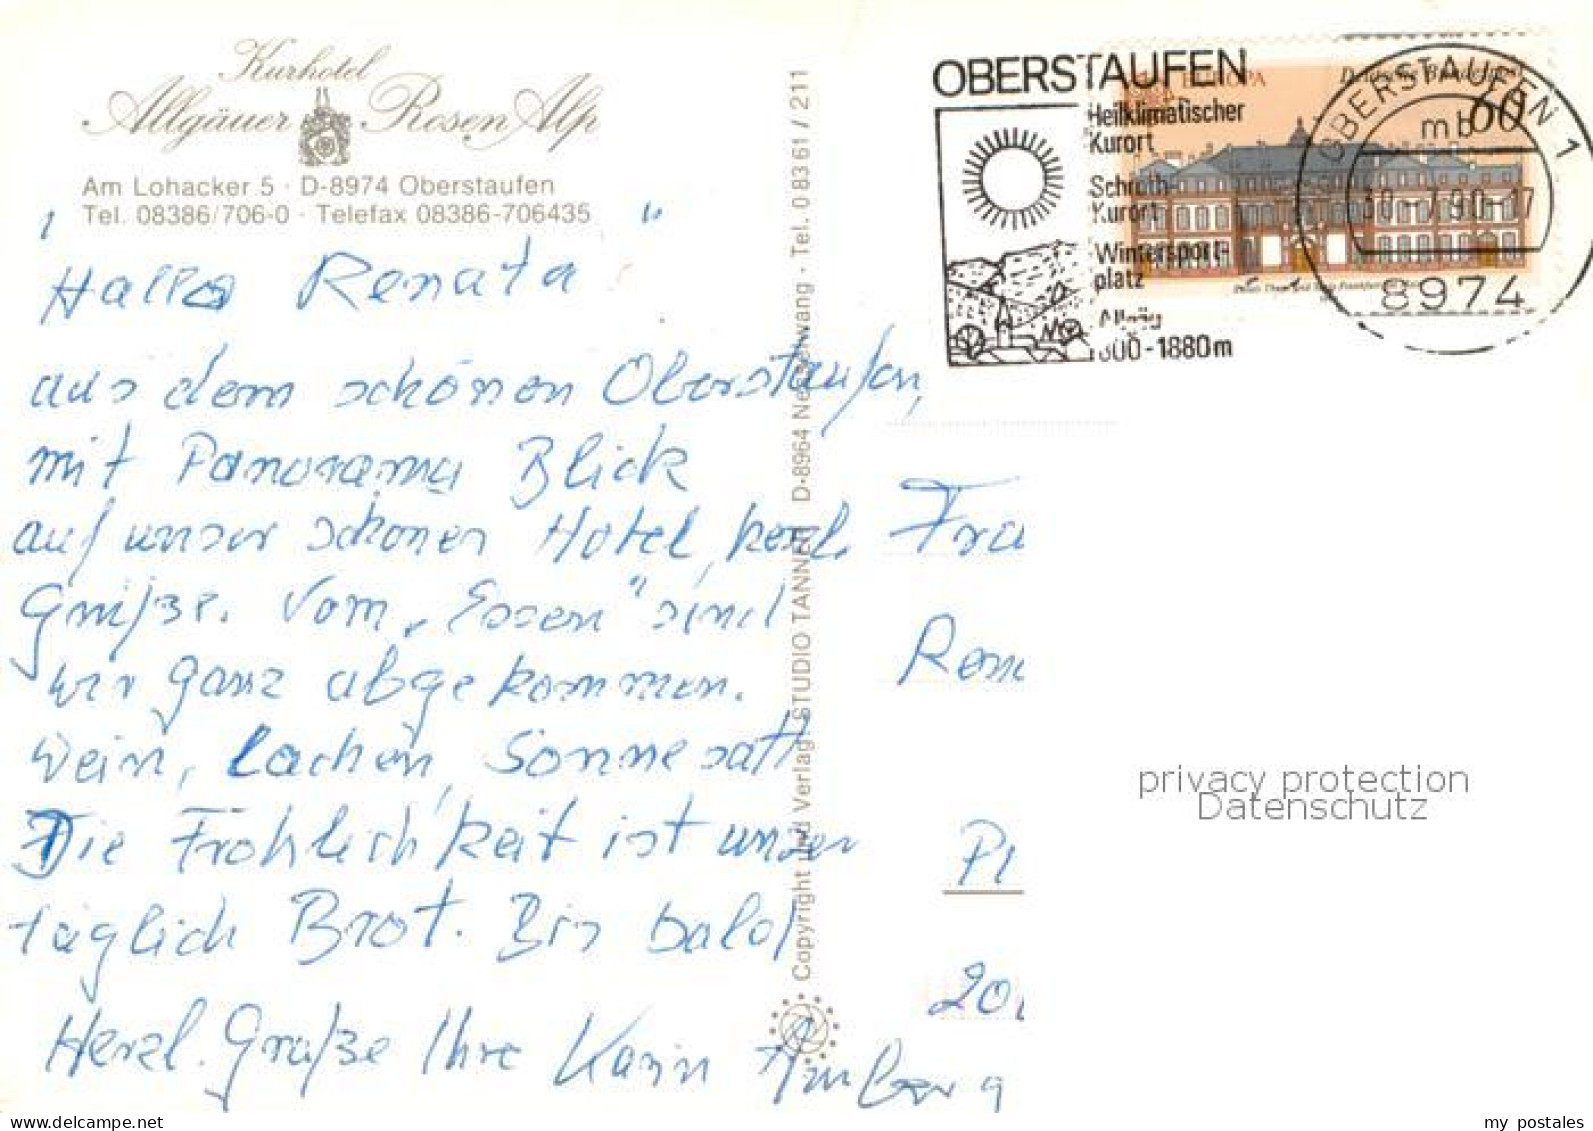 Kurhotel
Allgäuer Rosen Alp
Am Lohacker 5 · D-8974 Oberstaufen
Tel. 08386/706-0 · Telefax 08386-706435
" Hallo Renata "
aus dem schönen Oberstaufen,
mit Panorama Blick
auf unser schönes Hotel, herzl.
Grüße. Vom „Essen" sind
wir ganz abgekommen.
Wein, Lachen, Sonne satt
Die Fröhlichkeit ist unser
täglich Brot. Bis bald
Herzl. Grüße Ihre Karin Amberg
Copyright und Verlag STUDIO TANNER D-8964 Nesselwang · Tel. 0 83 61 / 211
OBERSTAUFEN
Heilklimatischer
Kurort
Schroth-
Kurort
Wintersport-
platz
Allgäu
800-1880m
EUROPA
Deutsche Bundespost
60
OBERSTAUFEN 1
mb
30.-7.90-17
8974
Fra
Rena
Pl
20
privacy protection
Datenschutz
my postales